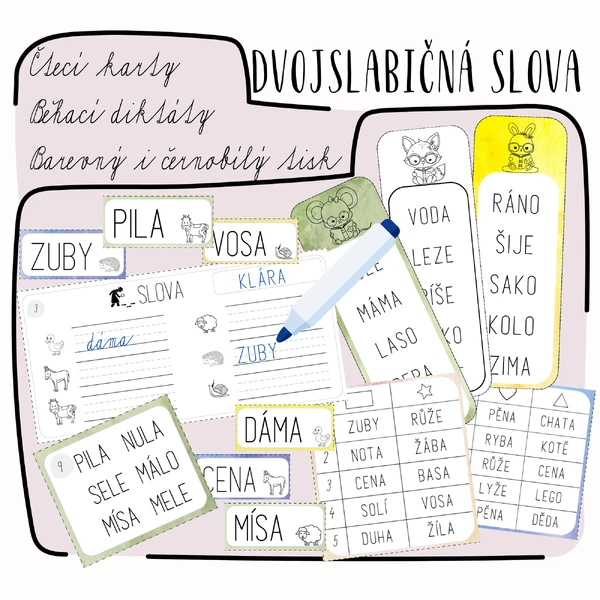 DVOJSLABIČNÁ SLOVA
Čtecí karty
Běhací diktáty
Barevný i černobílý tisk
PILA
ZUBY
VOSA
3
SLOVA
KLÁRA
dáma
ZUBY
MÁMA
LASO
VODA
LEZE
RÁNO
ŠIJE
SAKO
KOLO
ZIMA
9
PILA NULA
SELE MÁLO
MÍSA MELE
DÁMA
CENA
MÍSA
ZUBY RŮŽE
2 NOTA ŽÁBA
3 CENA BASA
4 SOLÍ VOSA
5 DUHA ŽÍLA
PĚNA CHATA
RYBA KOTĚ
RŮŽE CENA
LYŽE LEGO
PĚNA DĚDA